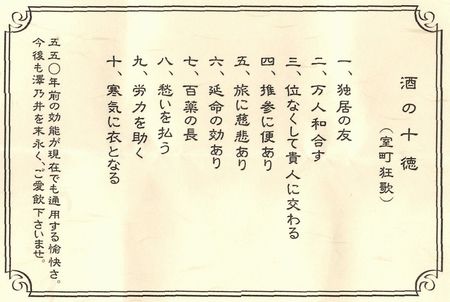 酒の十徳
(室町狂歌)
一、独居の友
二、万人和合す
三、位なくして貴人に交わる
四、推参に便あり
五、旅に慈悲あり
六、延命の効あり
七、百薬の長
八、愁いを払う
九、労力を助く
十、寒気に衣となる
五五〇年前の効能が現在でも通用する愉快さ。
今後も澤乃井を末永く、ご愛飲下さいませ。